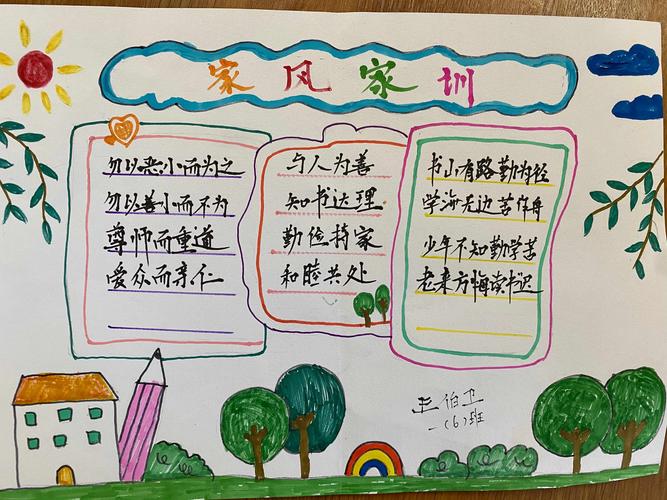 家风家训
勿以恶小而为之
勿以善小而不为
尊师而重道
爱众而亲仁
与人为善
知书达理
勤俭持家
和睦共处
书山有路勤为径
学海无边苦作舟
少年不知勤学苦
老来方悔读书迟
王伯卫
一(6)班